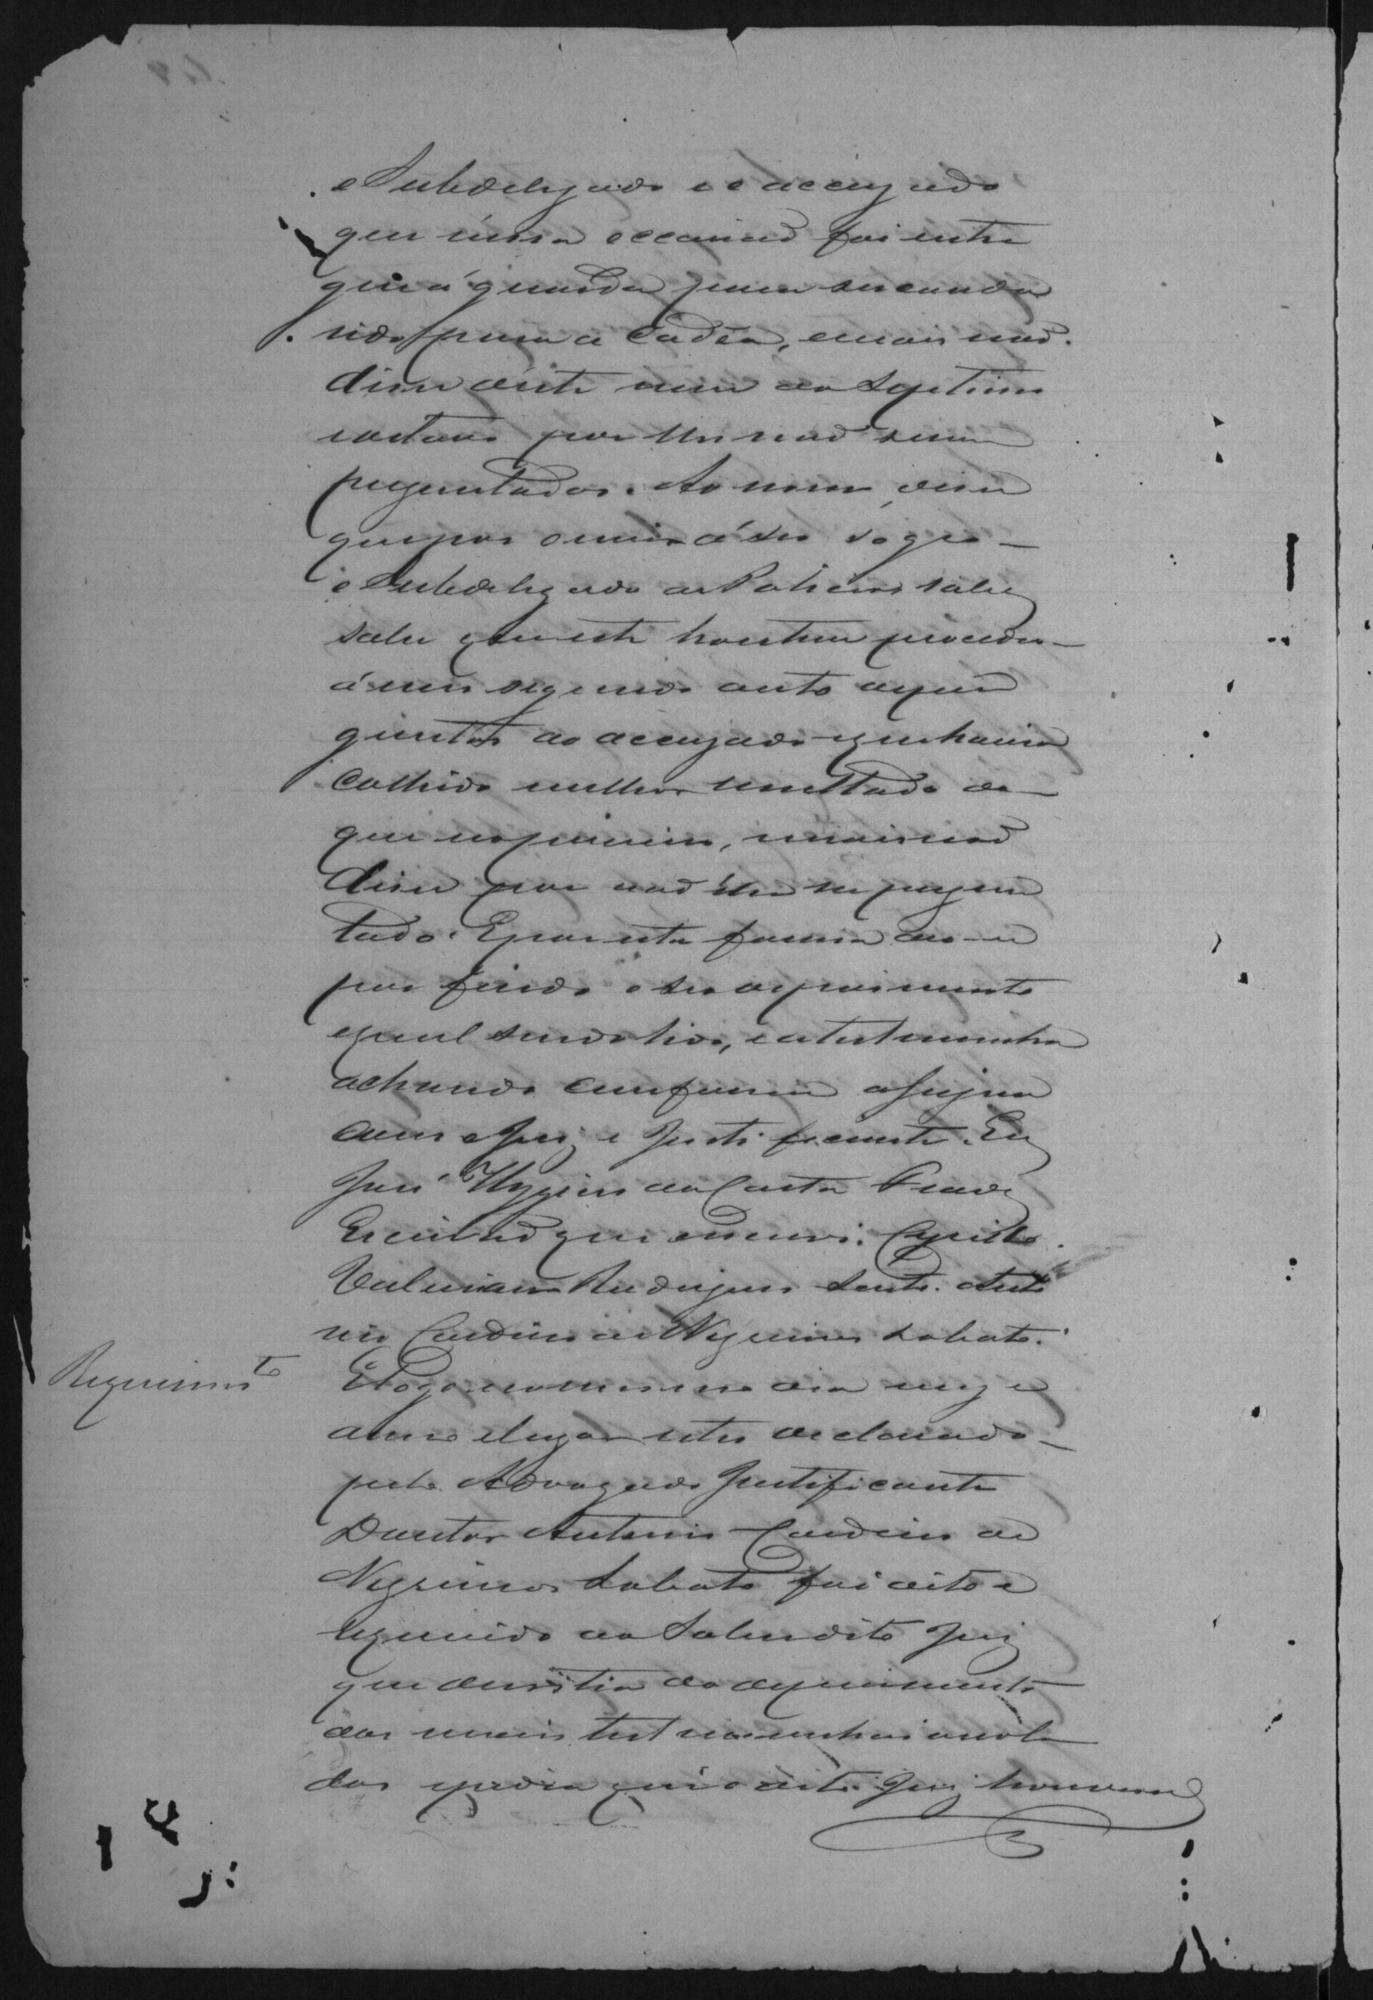 o Subdelegado e o accuzado
que nessa occasião foi entre
gue á guarda para ser condu
sido para a Cadêa, e mais não
disse deste nem do septimo
oitavo por lhe não serem
preguntados. Ao nono disse
que por ouvir á seu sogro
o Subdelegado de Policia
sabe que este hontem procedeo
á um segundo auto de per
guntas ao accuzado e que havia
colhido melhor resultado do
que no primeiro, e mais não
disse por não lhe ser pergun
tado. E por esta forma deo-se
por findo o seo depoimento
e qual sendo lido, e a testemunha
achando conforme assigna
com o Juiz e Justificante. Eu
José Hygino da Costa
Escrivão que escrevi. Cyrillo
Valeriano Rodrigues Anto
nio Cardoso de Negreiros Lobato.
Requerimto
E logo no mesmo dia mez e
anno e lugar retro declarado
pelo Advogado Justificante
Doutor Antonio Cardoso de
Negreiros Lobato foi dito e
requerido ao sobredito Juiz
que desistia do depoimento
das mais testemunhas arrola
das e pedia que o dito Juiz houvesse